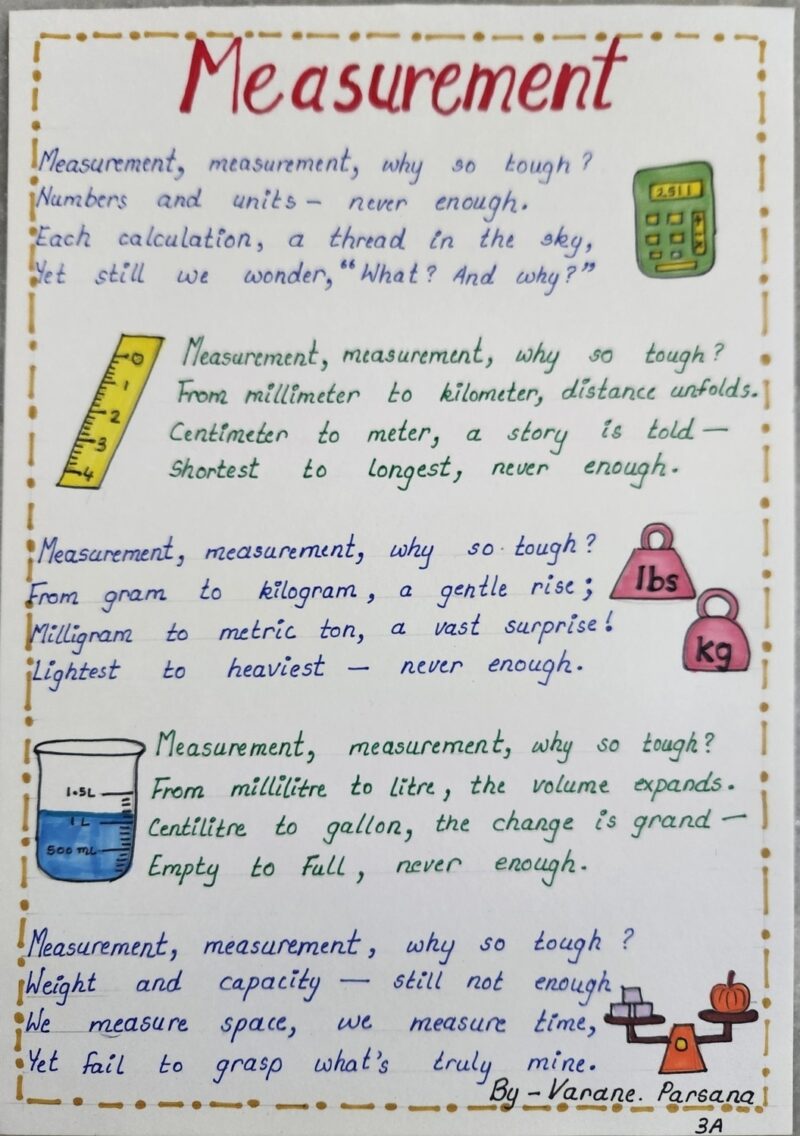 Measurement
Measurement, measurement, why so tough?
Numbers and units – never enough.
Each calculation, a thread in the sky,
Yet still we wonder, "What? And why?"
2.511
0
1
2
3
4
Measurement, measurement, why so tough?
From millimeter to kilometer, distance unfolds.
Centimeter to meter, a story is told —
Shortest to longest, never enough.
Measurement, measurement, why so tough?
From gram to kilogram, a gentle rise;
Milligram to metric ton, a vast surprise!
Lightest to heaviest — never enough.
lbs
kg
1.5L
1 L
500 mL
Measurement, measurement, why so tough?
From millilitre to litre, the volume expands.
Centilitre to gallon, the change is grand —
Empty to Full, never enough.
Measurement, measurement, why so tough ?
Weight and capacity — still not enough
We measure space, we measure time,
Yet fail to grasp what's truly mine.
By – Varane. Parsana
3A